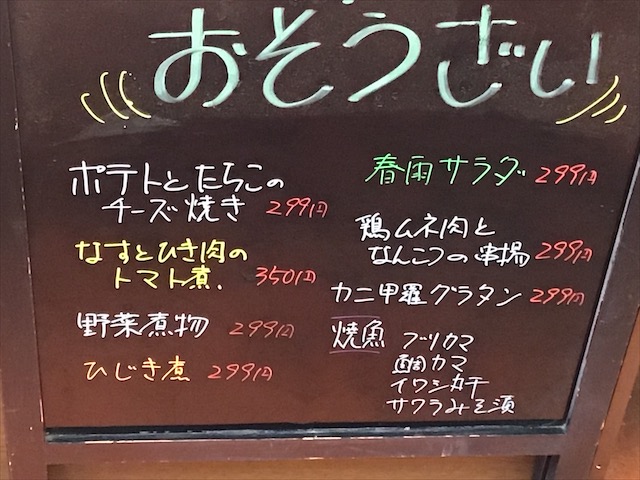 おそうざい
ポテトとたらこの
チーズ焼き 299円
なすとひき肉の
トマト煮. 350円
野菜煮物 299円
ひじき煮 299円
春雨サラダ 299円
鶏ムネ肉と
なんこつの串揚 299円
カニ甲羅グラタン 299円
焼魚 ブリカマ
鯛カマ
イワシ丸干
サワラみそ漬